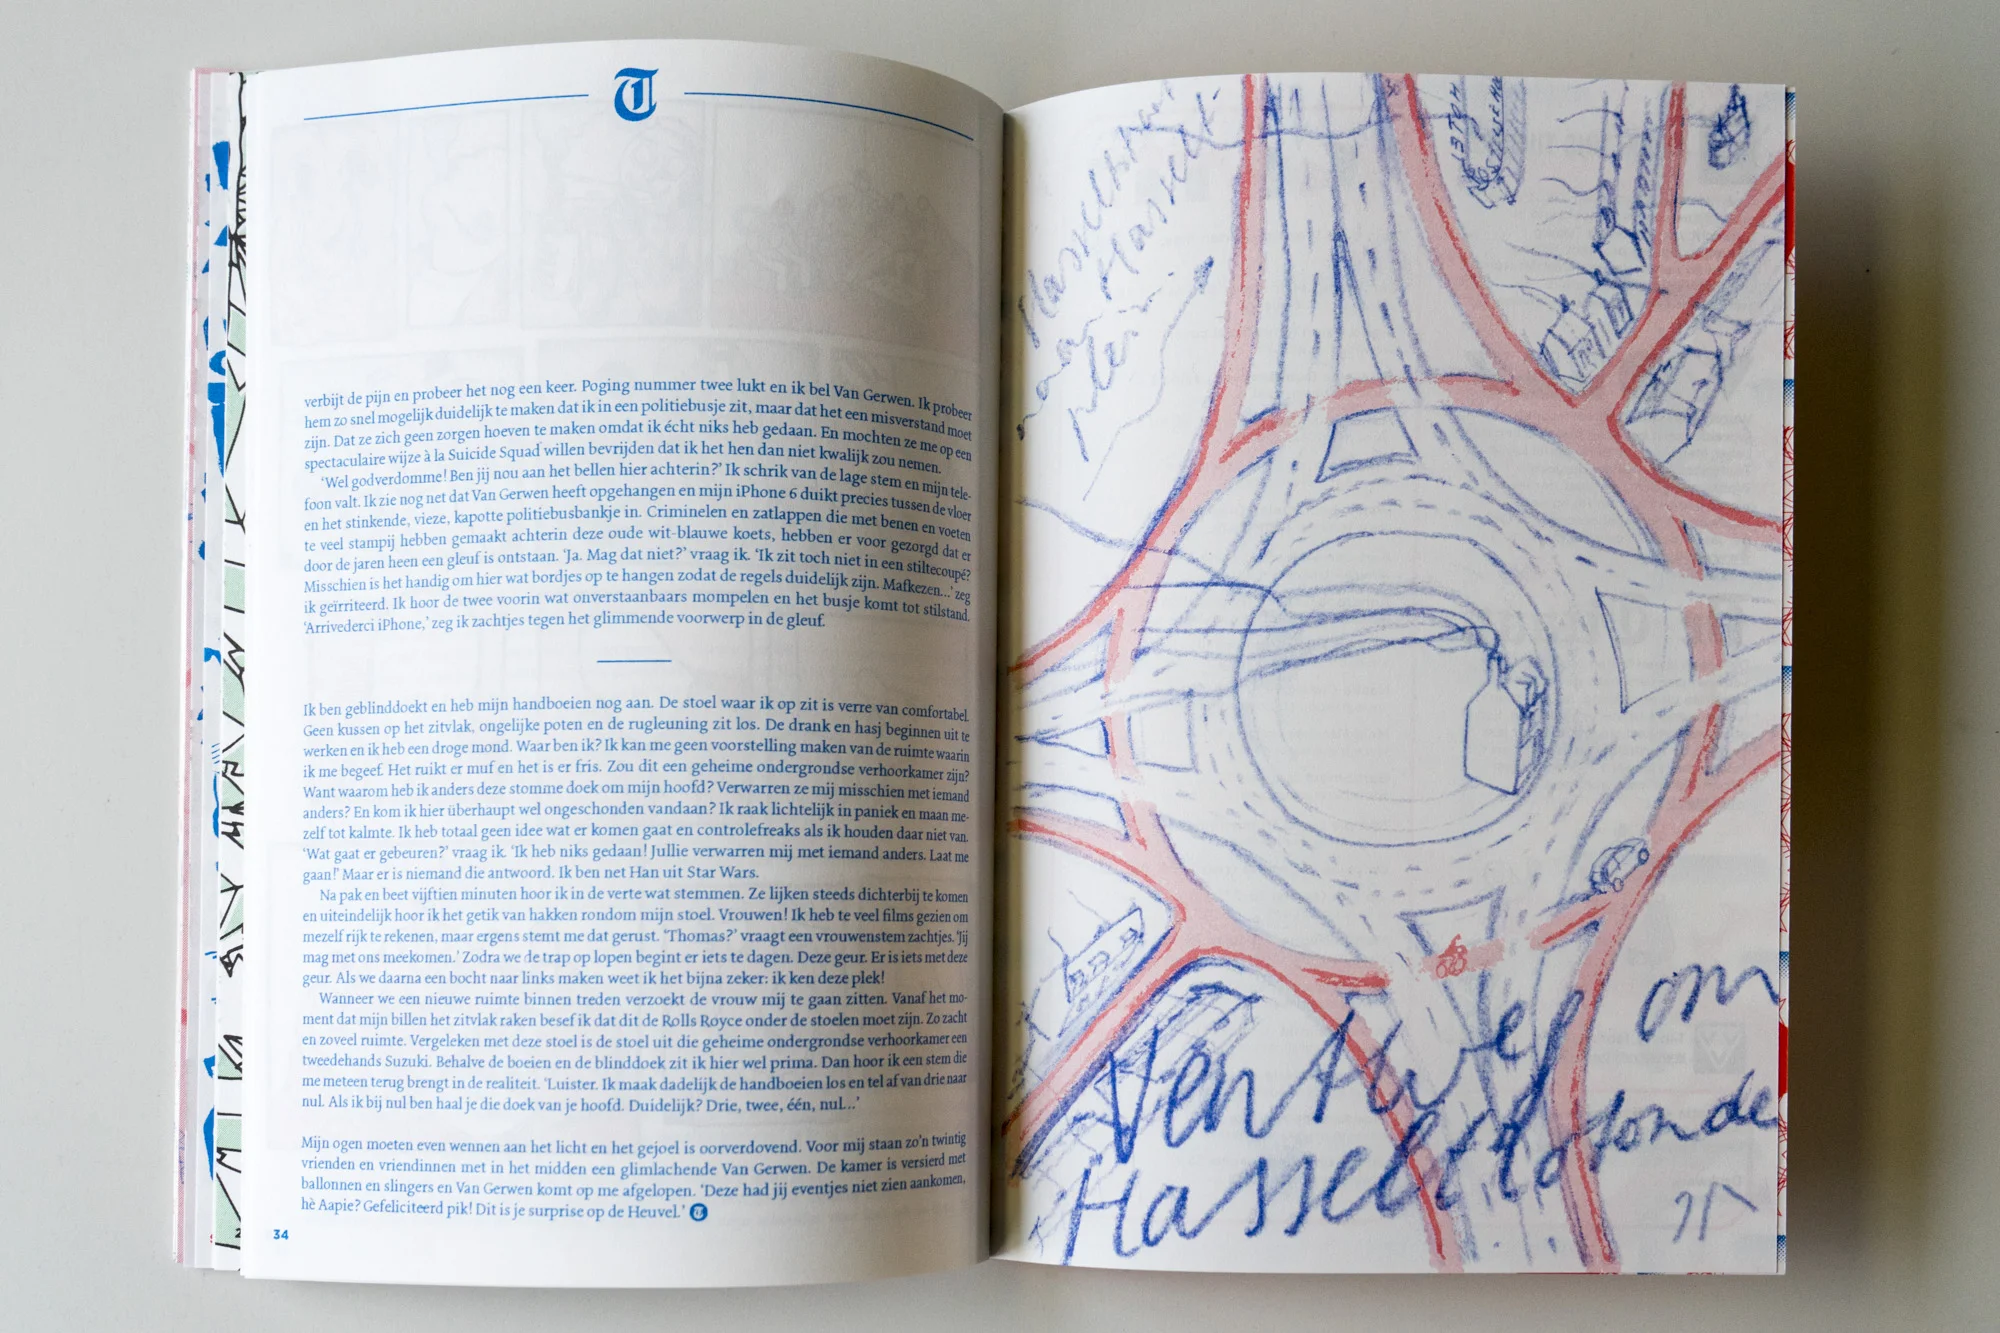 T
verbijt de pijn en probeer het nog een keer. Poging nummer twee lukt en ik bel Van Gerwen. Ik probeer
hem zo snel mogelijk duidelijk te maken dat ik in een politiebusje zit, maar dat het een misverstand moet
zijn. Dat ze zich geen zorgen hoeven te maken omdat ik écht niks heb gedaan. En mochten ze me op een
spectaculaire wijze à la Suicide Squad willen bevrijden dat ik het hen dan niet kwalijk zou nemen.
‘Wel godverdomme! Ben jij nou aan het bellen hier achterin?’ Ik schrik van de lage stem en mijn tele-
foon valt. Ik zie nog net dat Van Gerwen heeft opgehangen en mijn iPhone 6 duikt precies tussen de vloer
en het stinkende, vieze, kapotte politiebusbankje in. Criminelen en zatlappen die met benen en voeten
te veel stampij hebben gemaakt achterin deze oude wit-blauwe koets, hebben er voor gezorgd dat er
door de jaren heen een gleuf is ontstaan. ‘Ja. Mag dat niet?’ vraag ik. ‘Ik zit toch niet in een stiltecoupé?
Misschien is het handig om hier wat bordjes op te hangen zodat de regels duidelijk zijn. Mafkezen...’ zeg
ik geïrriteerd. Ik hoor de twee voorin wat onverstaanbaars mompelen en het busje komt tot stilstand.
‘Arrivederci iPhone,’ zeg ik zachtjes tegen het glimmende voorwerp in de gleuf.
Ik ben geblinddoekt en heb mijn handboeien nog aan. De stoel waar ik op zit is verre van comfortabel.
Geen kussen op het zitvlak, ongelijke poten en de rugleuning zit los. De drank en hasj beginnen uit te
werken en ik heb een droge mond. Waar ben ik? Ik kan me geen voorstelling maken van de ruimte waarin
ik me begeef. Het ruikt er muf en het is er fris. Zou dit een geheime ondergrondse verhoorkamer zijn?
Want waarom heb ik anders deze stomme doek om mijn hoofd? Verwarren ze mij misschien met iemand
anders? En kom ik hier überhaupt wel ongeschonden vandaan? Ik raak lichtelijk in paniek en maan me-
zelf tot kalmte. Ik heb totaal geen idee wat er komen gaat en controlefreaks als ik houden daar niet van.
‘Wat gaat er gebeuren?’ vraag ik. ‘Ik heb niks gedaan! Jullie verwarren mij met iemand anders. Laat me
gaan!’ Maar er is niemand die antwoord. Ik ben net Han uit Star Wars.
Na pak en beet vijftien minuten hoor ik in de verte wat stemmen. Ze lijken steeds dichterbij te komen
en uiteindelijk hoor ik het getik van hakken rondom mijn stoel. Vrouwen! Ik heb te veel films gezien om
mezelf rijk te rekenen, maar ergens stemt me dat gerust. ‘Thomas?’ vraagt een vrouwenstem zachtjes. ‘Jij
mag met ons meekomen.’ Zodra we de trap op lopen begint er iets te dagen. Deze geur. Er is iets met deze
geur. Als we daarna een bocht naar links maken weet ik het bijna zeker: ik ken deze plek!
Wanneer we een nieuwe ruimte binnen treden verzoekt de vrouw mij te gaan zitten. Vanaf het mo-
ment dat mijn billen het zitvlak raken besef ik dat dit de Rolls Royce onder de stoelen moet zijn. Zo zacht
en zoveel ruimte. Vergeleken met deze stoel is de stoel uit die geheime ondergrondse verhoorkamer een
tweedehands Suzuki. Behalve de boeien en de blinddoek zit ik hier wel prima. Dan hoor ik een stem die
me meteen terug brengt in de realiteit. ‘Luister. Ik maak dadelijk de handboeien los en tel af van drie naar
nul. Als ik bij nul ben haal je die doek van je hoofd. Duidelijk? Drie, twee, één, nul...’
Mijn ogen moeten even wennen aan het licht en het gejoel is oorverdovend. Voor mij staan zo’n twintig
vrienden en vriendinnen met in het midden een glimlachende Van Gerwen. De kamer is versierd met
ballonnen en slingers en Van Gerwen komt op me afgelopen. ‘Deze had jij eventjes niet zien aankomen,
hè Aapie? Gefeliciteerd pik! Dit is je surprise op de Heuvel.’
34
Hasselt
plein
om
Hasselt